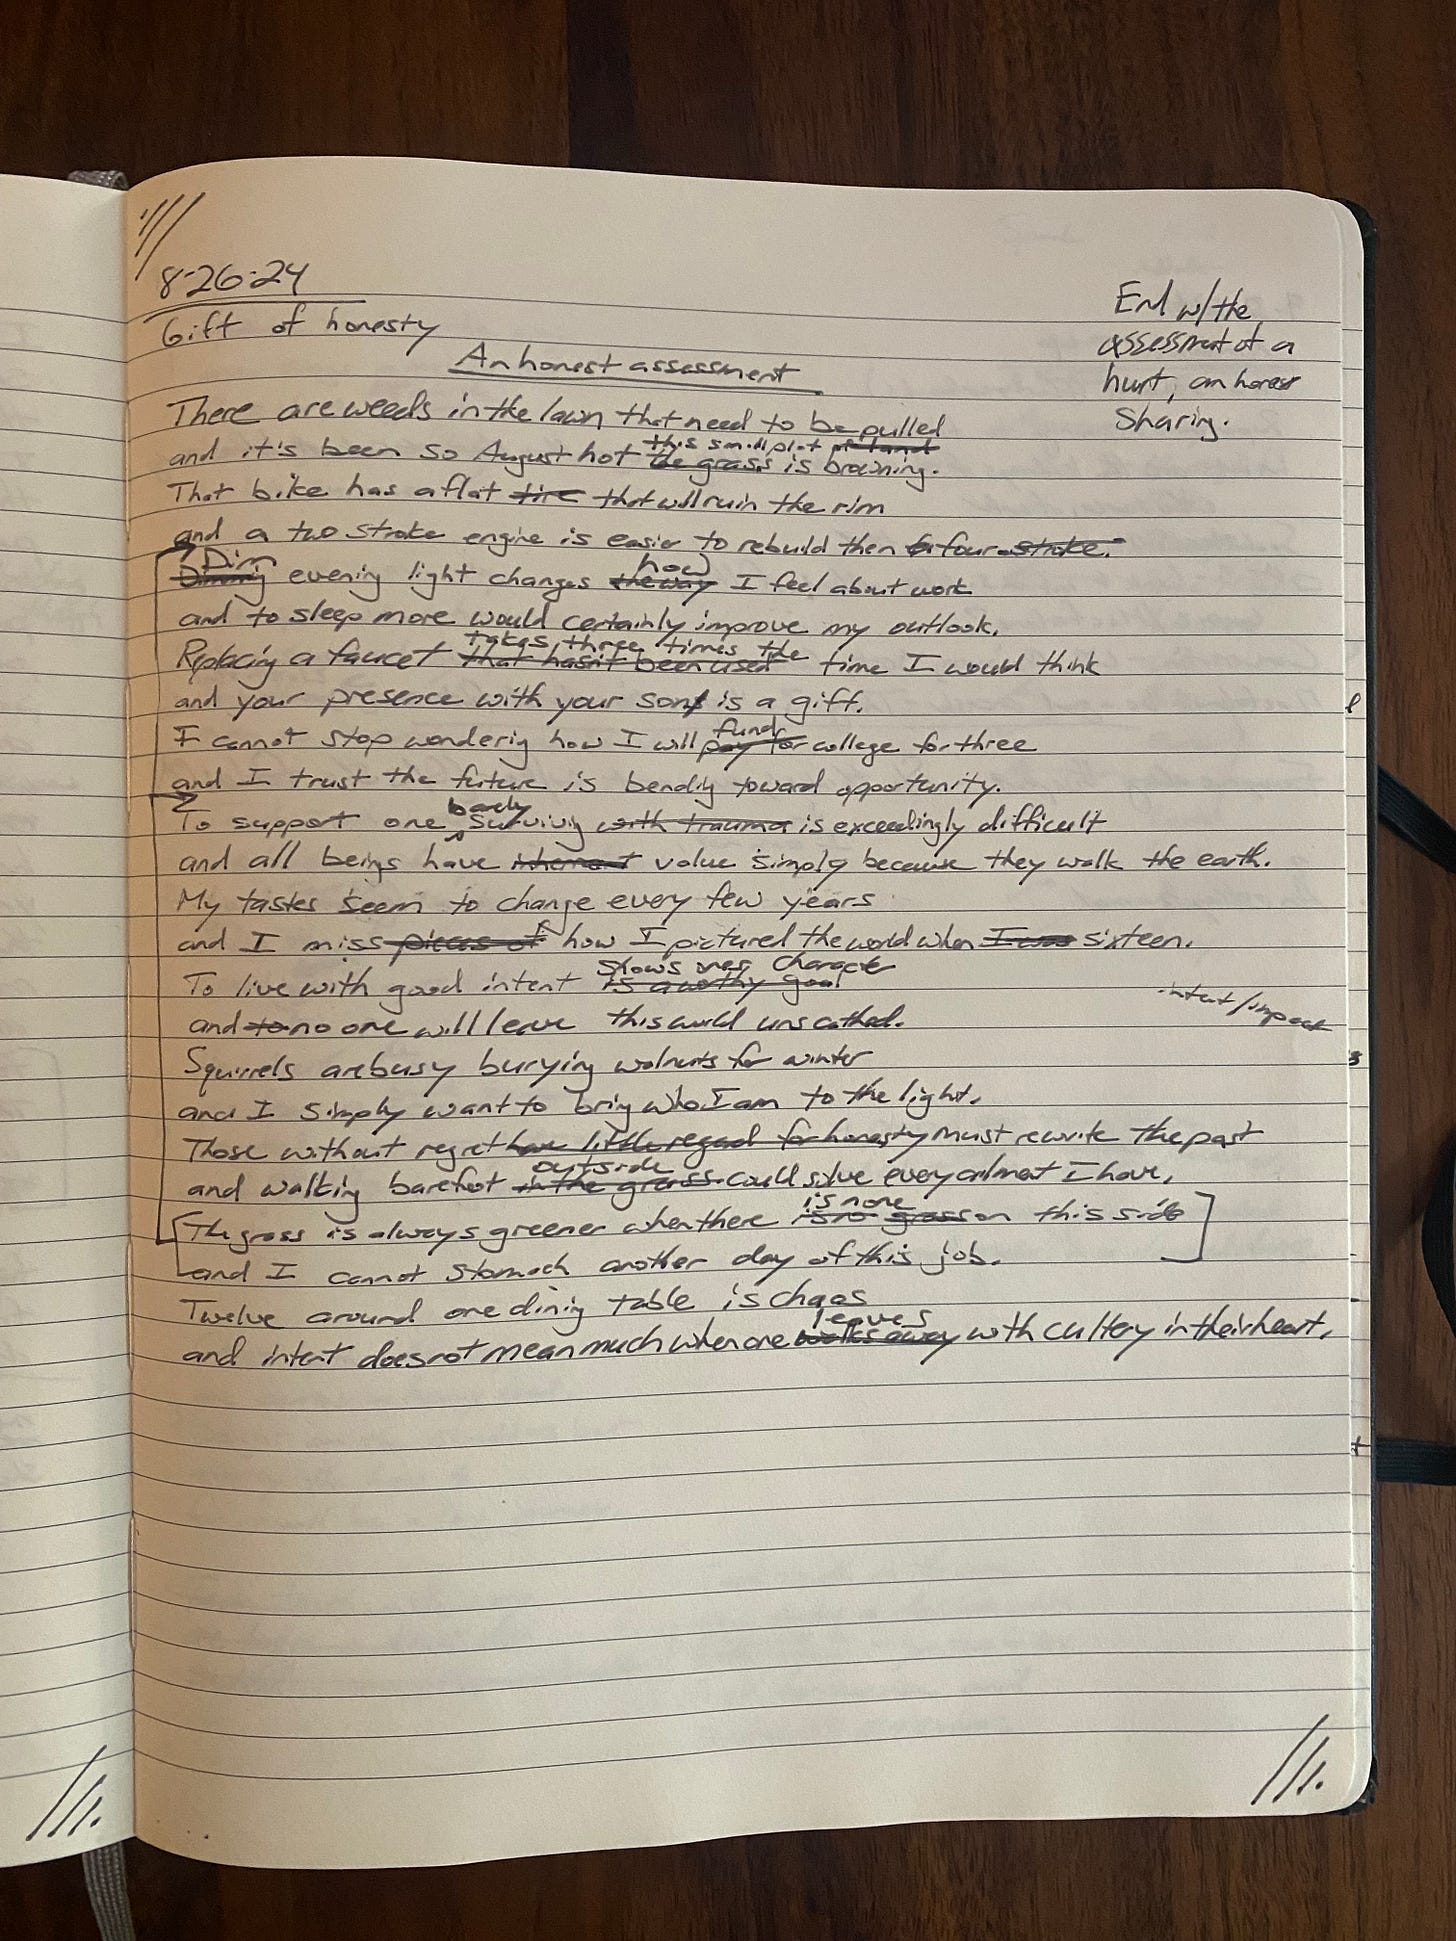 8-26-24
Gift of honesty
End w/the
assessment of a
hurt, an honest
sharing.
An honest assessment
There are weeds in the lawn that need to be pulled
this small plot of land
and it's been so August hot the grass is browning.
That bike has a flat tire that will ruin the rim
and a two stroke engine is easier to rebuild then four-stroke.
Dim how
Dimming evening light changes the way I feel about work
and to sleep more would certainly improve my outlook.
takes three times the
Replacing a faucet that hasn't been used time I would think
and your presence with your sons is a gift.
fund
I cannot stop wondering how I will pay for college for three
and I trust the future is bending toward opportunity.
barely
To support one surviving with trauma is exceedingly difficult
and all beings have inherent value simply because they walk the earth.
My tastes seem to change every few years
and I miss pieces of how I pictured the world when I was sixteen.
shows ones character
To live with good intent is a worthy goal
intent/impact
and to no one will leave this world unscathed.
Squirrels are busy burying walnuts for winter
and I simply want to bring who I am to the light.
Those without regret have little regard for honesty must rewrite the past
outside
and walking barefoot in the grass could solve every ailment I have.
is none
The grass is always greener when there is no grass on this side
and I cannot stomach another day of this job.
Twelve around one dining table is chaos
leaves
and intent does not mean much when one walks away with cutlery in their heart.